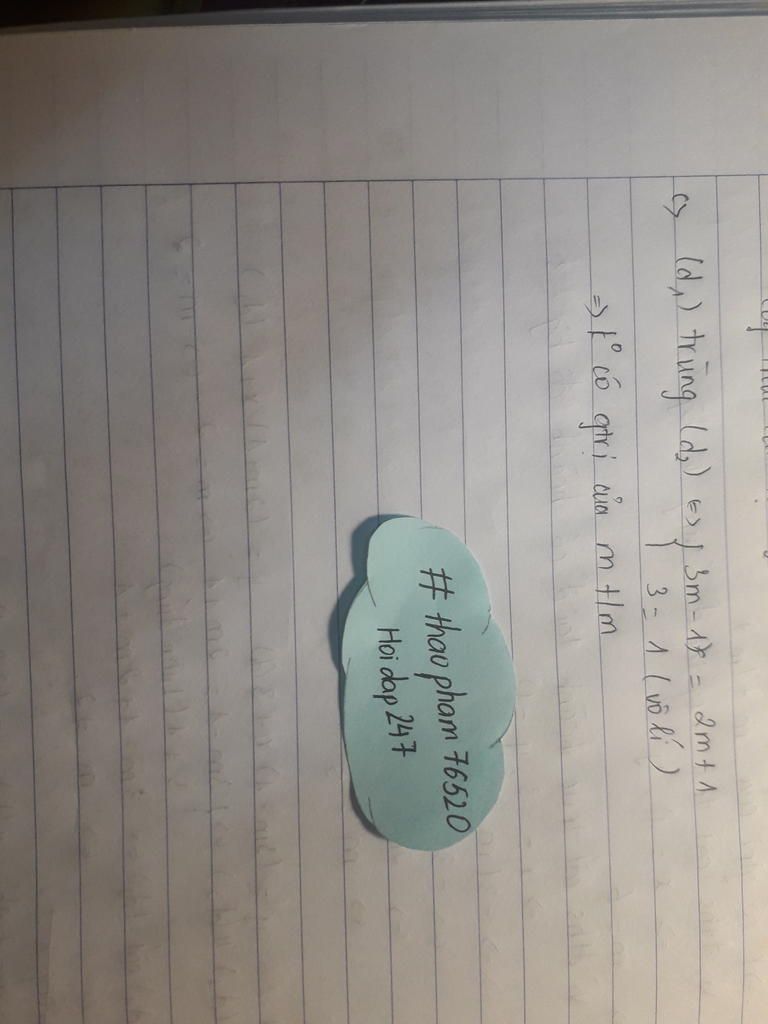 <=> (d₁) trùng (d₂) <=> { 3m - 1 = 2m + 1
3 = 1 (vô lí)
=> k° có gtrị của m t/m
# thaopham76520
Hoidap247